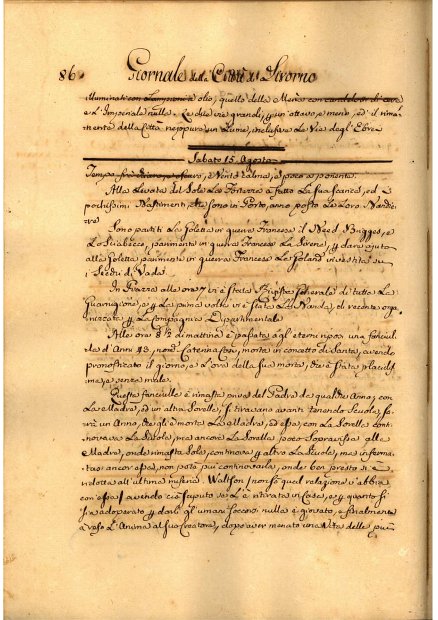 86. Giornale della Città di Livorno
illuminati con Lampioni a olio, quello della Menà con candelotti di cera
e L'Imperiale nulla. Le due vie grandi, un ottavo e meno, ed il rima:
nente della Città neppure un Lume, inclusive La Via degl'Ebrei
Sabato 15. Agosto
Tempo oscuro, e Vento calma, a poco a ponente.
Alla Levata del Sole La Fortezza à fatto La sua scarica, ed i
pochissimi Bastimenti, che sono in Porto, anno posto Le Loro Bandie:
re
Sono partiti La Goletta in guerra Francese il Need Bugges, e
Lo Sciabecco, parimente in guerra Francese La Sirene, dare ajuto
alla Goletta parimente in guerra Francese Le Roland investita su
i Secchi di Vada.
In Piazza alle ore 7 vi è stata Rivista Generale di tutta La
Guarnigione, e La prima volta vi è stata La Banda, di recente or:
nizzata La Compagnia Dipartimentale
Alle ore 8 ½ di mattina è passata agl'eterni riposi una fanciul:
la d'Anni 13. nom.ª Caterina morta in concetto di Santa, avendo
pronosticato il giorno, e L'ora della sua morte, che è stata placidis:
ma, e senza male.
Questa fanciulla è rimasta priva del Padre da qualche Anno, con
La Madre, ed un altra Sorella, si tiravano avanti tenendo Scuola,
un Anno, che gl'è morta La Madre, ed essa, con La Sorella conti:
novava La Scuola, ma ancora La Sorella poco sopravisse alla
Madre, onde rimasta Sola, continovava La Scuola, ma inferma:
tasi ancor essa, non potè più continovarla, onde ben presto si è
ridotta all'ultima miseria. Waltson non so qual relazione v'abbia
con essa avendo ciò saputo se L'è ritirata in Casa, e quanto si
sia adoperato darle gl'umani soccorsi nulla è giovato, e finalmente
à reso L'Anima al suo Creatore, dopo aver menato una Vita delle più